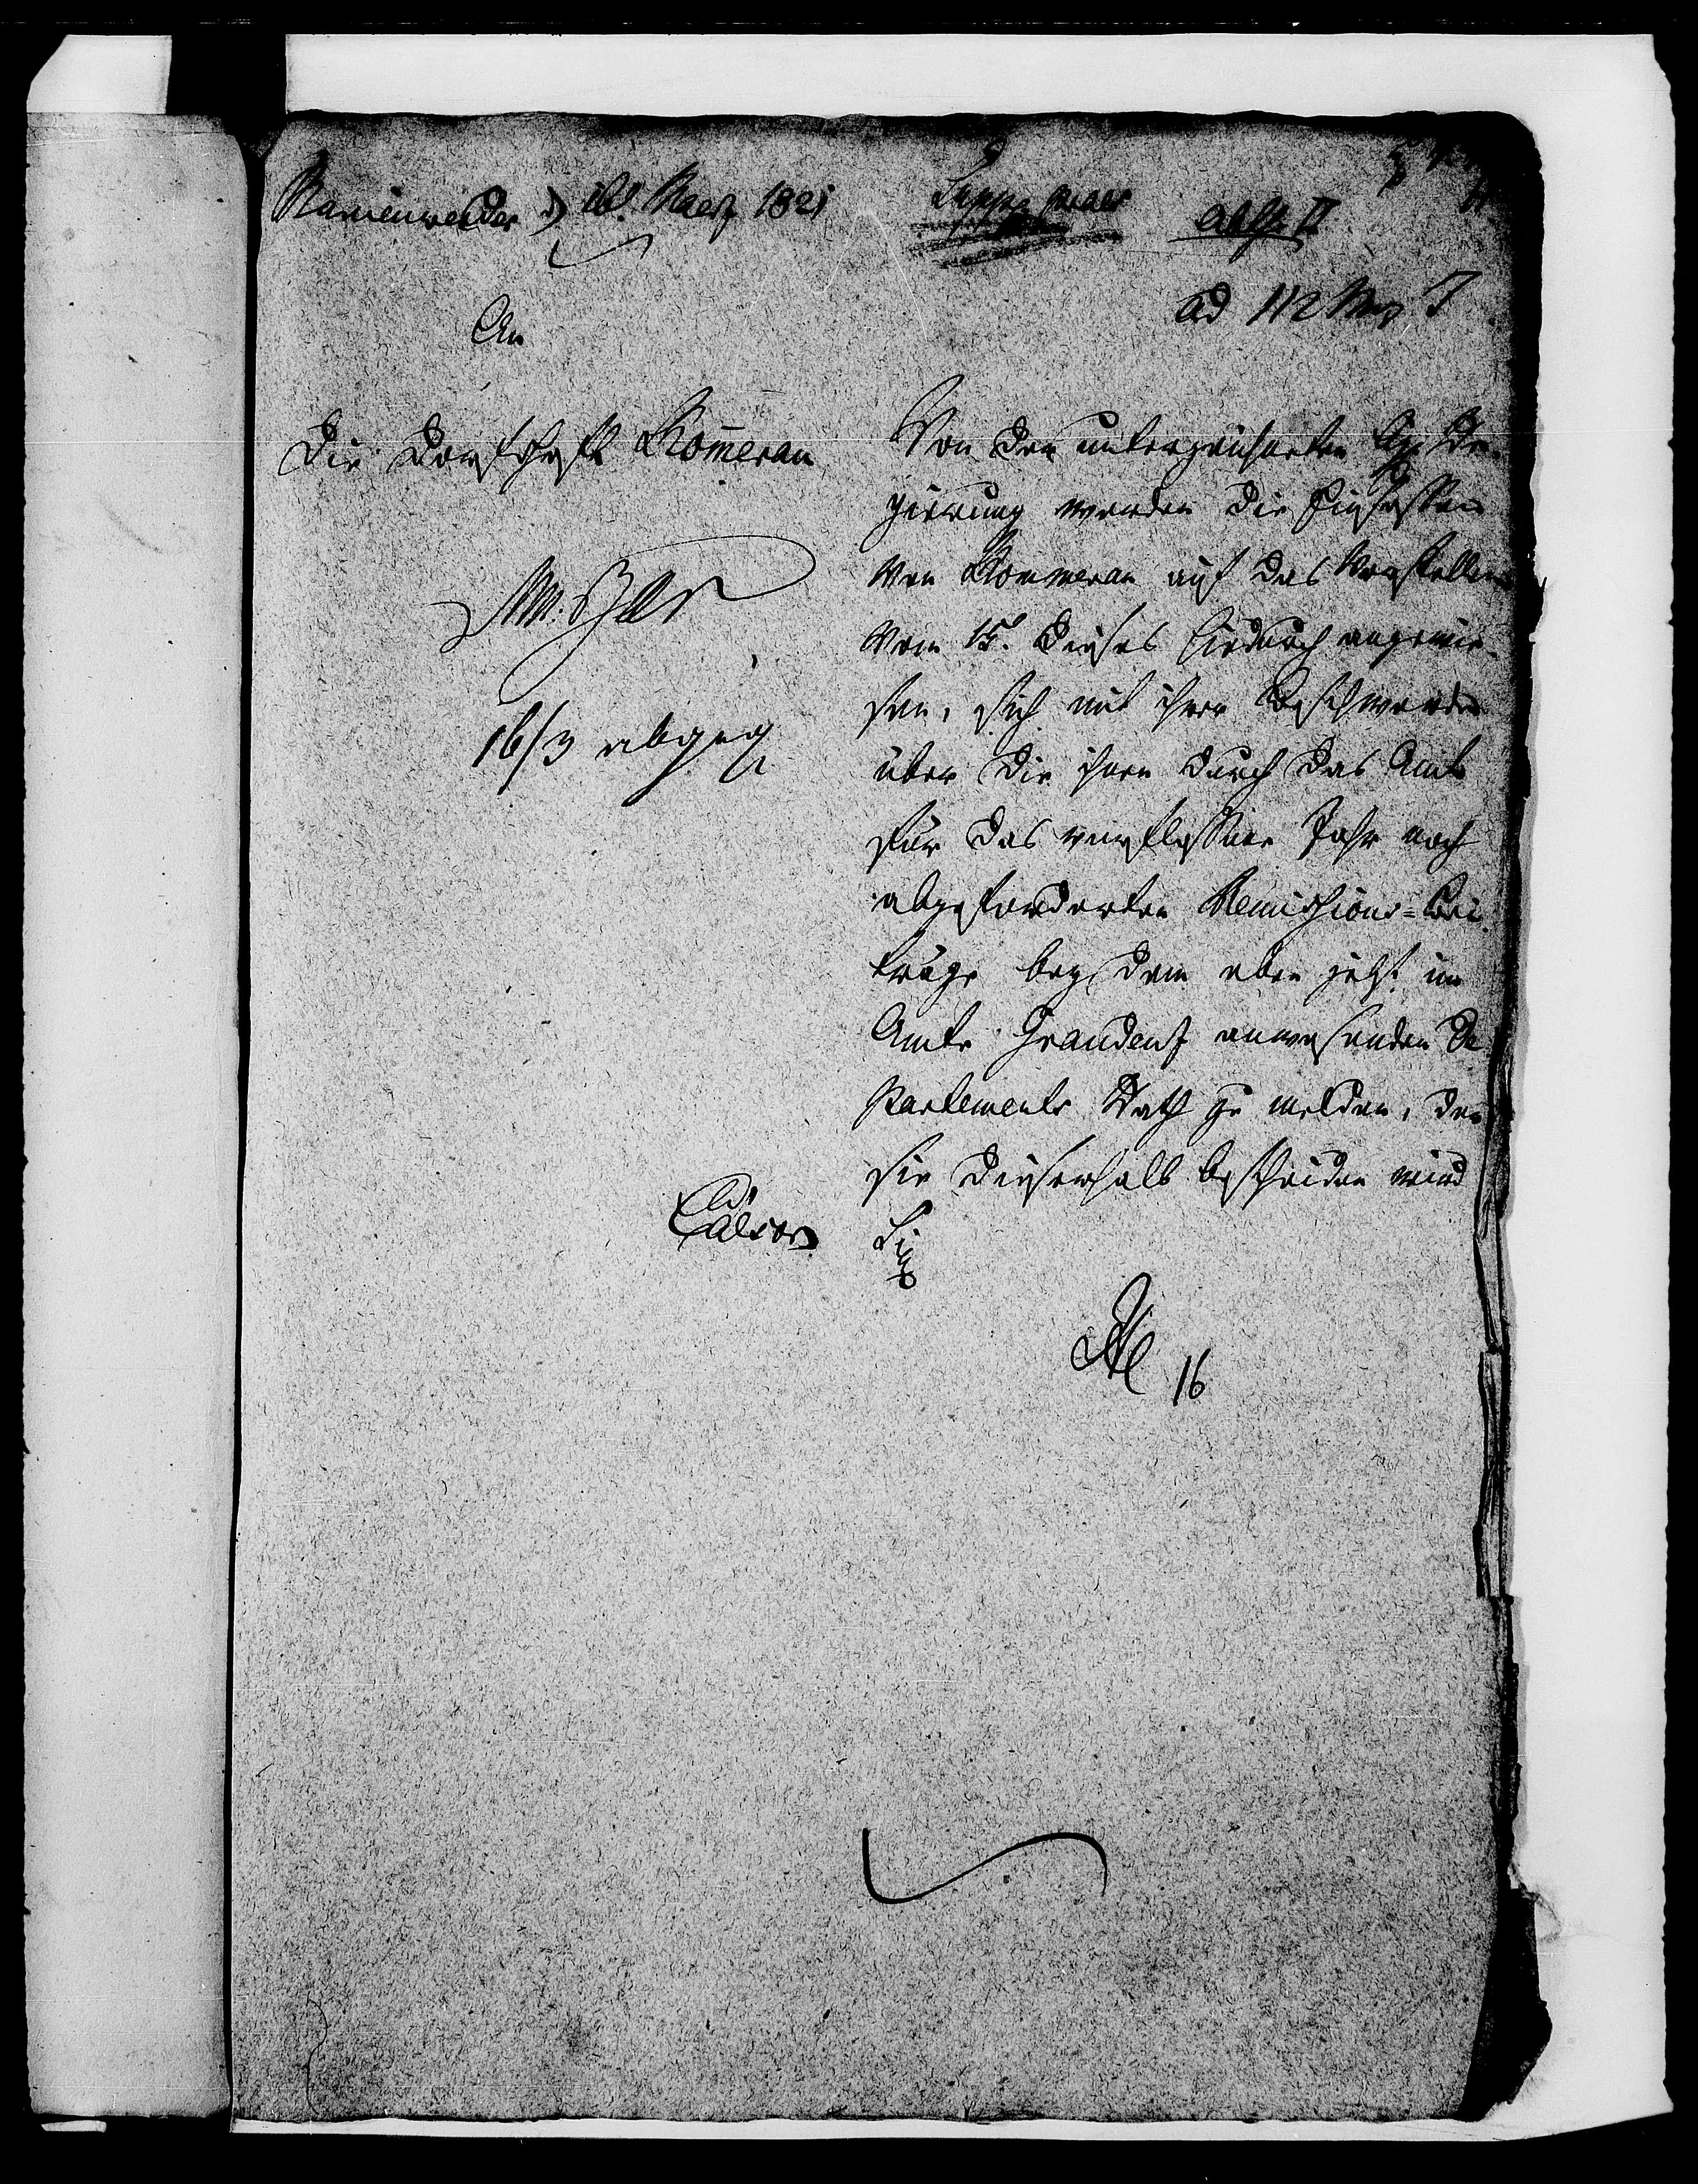 Marienwerder d 16t Maerz 1821
Abth. II
ad 112 Mrz I
An
Die Dorfschafft Kom̄erau
16/3 abgeg
Von der unterzeichneten Kgl Re-
gierung werden die Einsassen
von Kommerau auf das Vorstellen
vom 15t. dieses hiedurch angewie-
sen, sich mit ihren Beschwerden
über die ihnen durch das Amt
für das verflossene Jahr noch
abgeforderten Remissions=Bei
träge bey dem eben jetzt im
Amte Graudenz anwesenden De
partements Rath zu melden, der
sie dieserhalb bescheiden wird
16